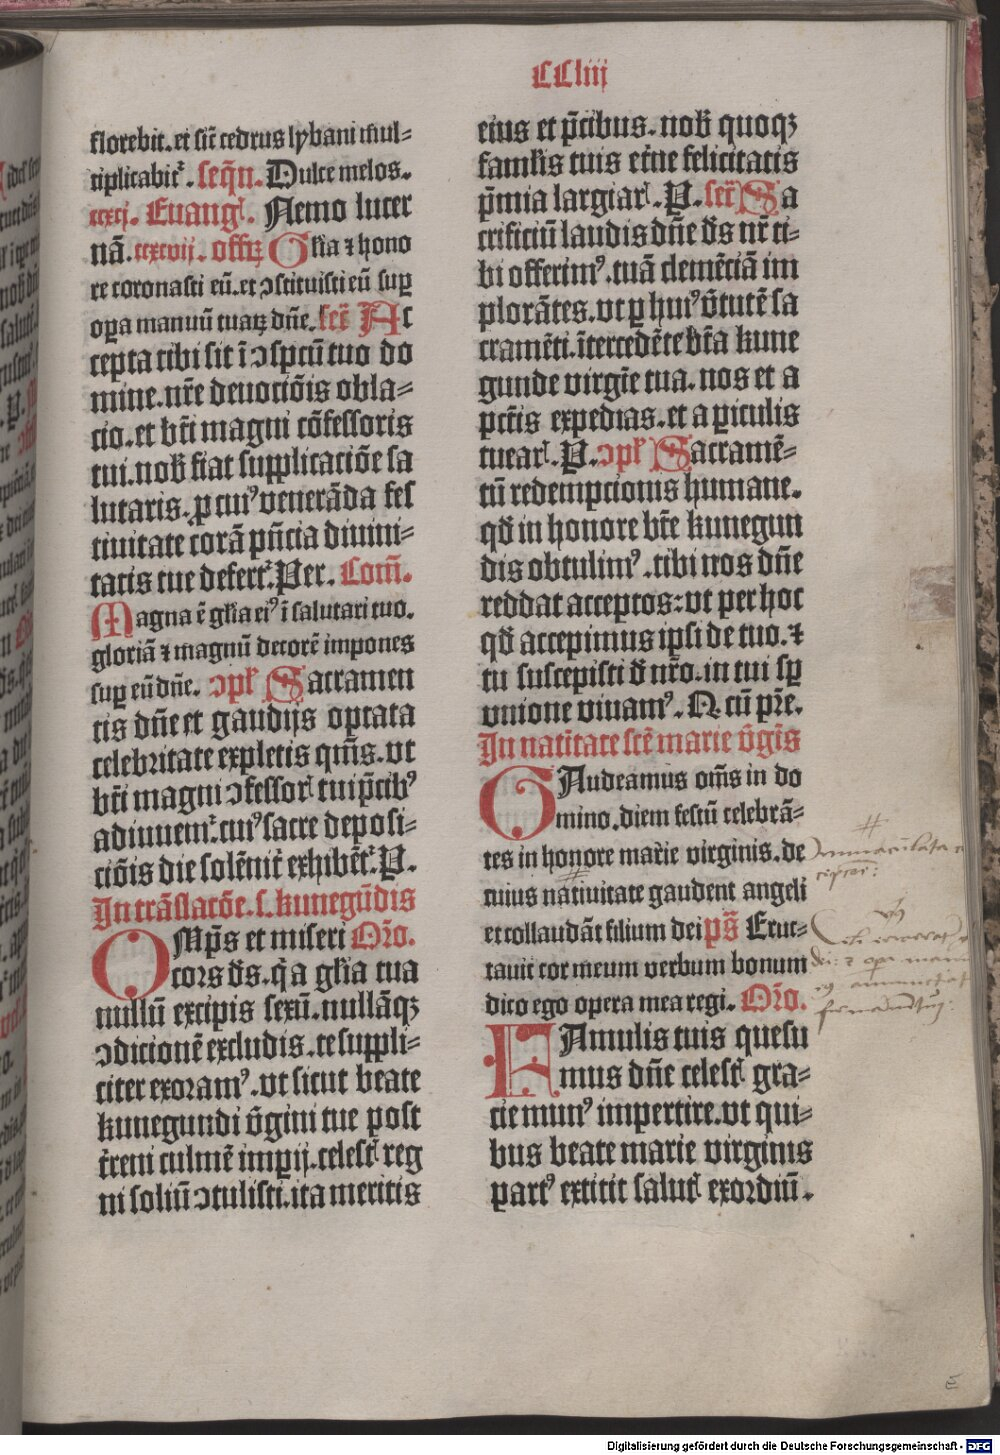 CCliij
florebit. et sic̄ cedrus lybani mul⸗
tiplicabit᷑. seq̄n. Dulce melos.
ccxcj. Euangl. Nemo lucer
nā. ccxcvij. offꝫ Gl̄ia ⁊ hono
re coronasti eū. et ↄstituisti eū suꝑ
oꝑa manuū tuaꝝ dn̄e. sec̄ Ac
cepta tibi sit ī ↄspcū tuo do
mine. nr̄e deuociōis obla⸗
cio. et bt̄i magni cōfessoris
tui. nob̄ fiat supplicaciōe sa
lutaris. ꝓ cuiꝰ venerāda fes
tiuitate corā pn̄cia diuini⸗
tatis tue defert᷑. Per. Com̄.
Magna ē gl̄ia eiꝰ ī salutari tuo.
gloriā ⁊ magnū decorē impones
suꝑ eū dn̄e. ↄpl̄ Sacramen
tis dn̄e et gaudijs optata
celebritate expletis qm̄s. vt
bt̄i magni ↄfessorꝭ tui p̄cibꝰ
adiuuem᷑. cuiꝰ sacre deposi⸗
ciōis die solēnit᷑ exhibēt᷑. P̄.
In trāslacōe. s. kunegūdis
OMp̄s et miseri Or̄o.
cors ds̄. q̄a gl̄ia tua
nullū excipis sexū. nullāqꝫ
ↄdicionē excludis. te suppli⸗
citer exoramꝰ. vt sicut beate
kunegundi v̄gini tue post
t᷑reni culmē impij. celestꝭ reg
ni soliū ↄtulisti. ita meritis
eius et p̄cibus. nob̄ quoqꝫ
famlis tuis et᷑ne felicitatis
p̄mia largiarꝭ. P̄. sec̄ Sa
crificiū laudis dn̄e ds̄ nr̄ ti⸗
bi offerimꝰ. tuā clemēciā im
plorātes. vt ꝑ huiꝰ v̄tutē sa
cramēti. īntercedēte bt̄a kune
gunde virgīe tua. nos et a
pctīs expedias. et a ꝑiculis
tuearꝭ. P̄. ↄpl̄ Sacramē⸗
tū redempcionis humane.
qd̄ in honore bt̄e kunegun
dis obtulimꝰ. tibi nos dn̄e
reddat acceptos: vt per hoc
qd̄ accepimus ipsi de tuo. ⁊
tu suscepisti d̄ nr̄o. in tui sꝑ
vnione viuamꝰ. Q cū pr̄e.
In natītate sct̄e marie v̄gīs
GAudeamus om̄s in do
mino. diem festū celebrā⸗
tes in honore marie virginis. de
cuius natiuitate gaudent angeli
et collaudāt filium dei ps̄ Eruc⸗
tauit cor meum verbum bonum
dico ego opera mea regi. Or̄o.
FAmulis tuis quesu
mus dn̄e celestꝭ gra⸗
cie munꝰ impertire. vt qui⸗
bus beate marie virginis
partꝰ extitit salutꝭ exordiū.
Immaculata
Digitalisierung gefördert durch die Deutsche Forschungsgemeinschaft - DFG